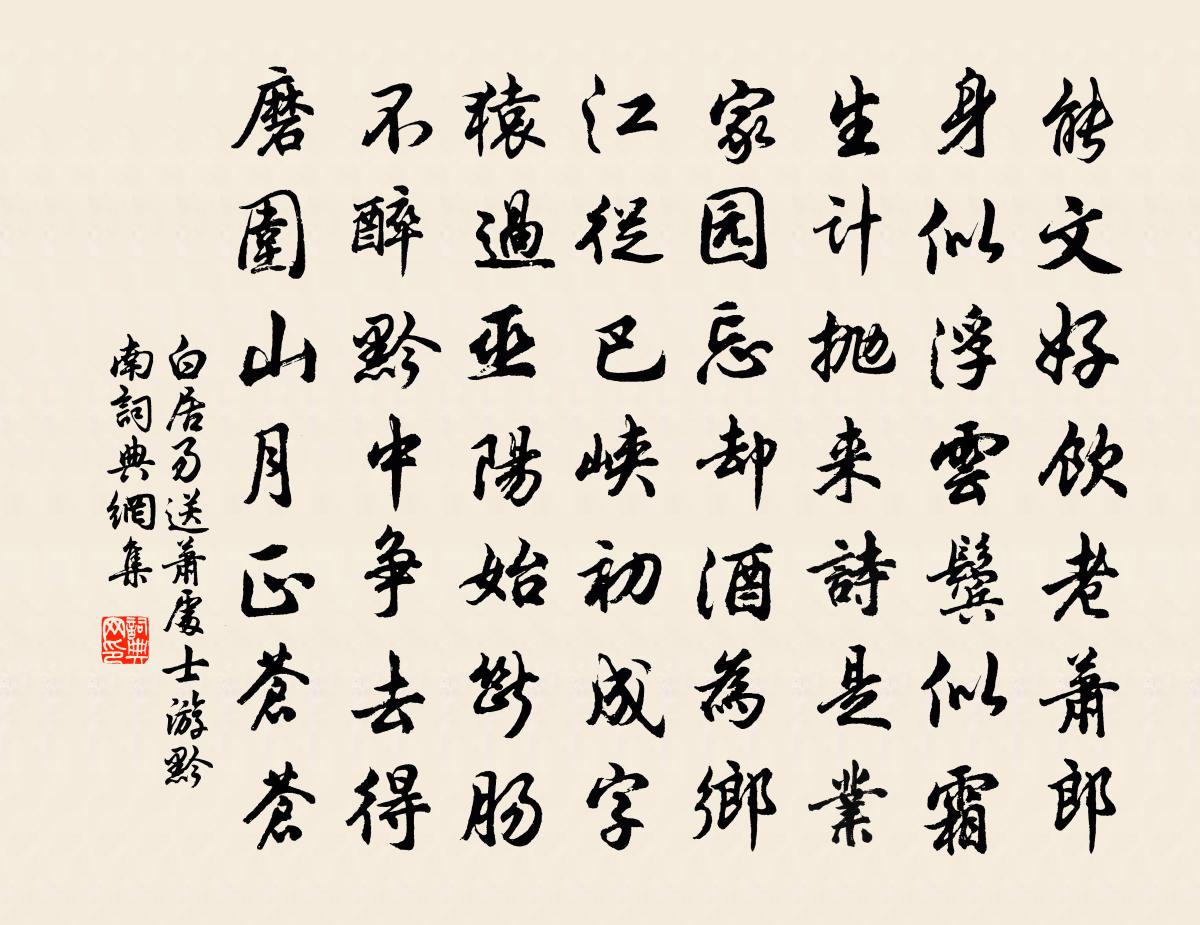 能文好飲老蕭郎
身似浮雲鬢似霜
生計抛来詩是業
家园忘却酒為鄉
江從巴峽初成字
猿過巫陽始断肠
不醉黔中争去得
磨圍山月正蒼蒼
白居易送蕭處士游黔
南詞典網集
詞典
网印